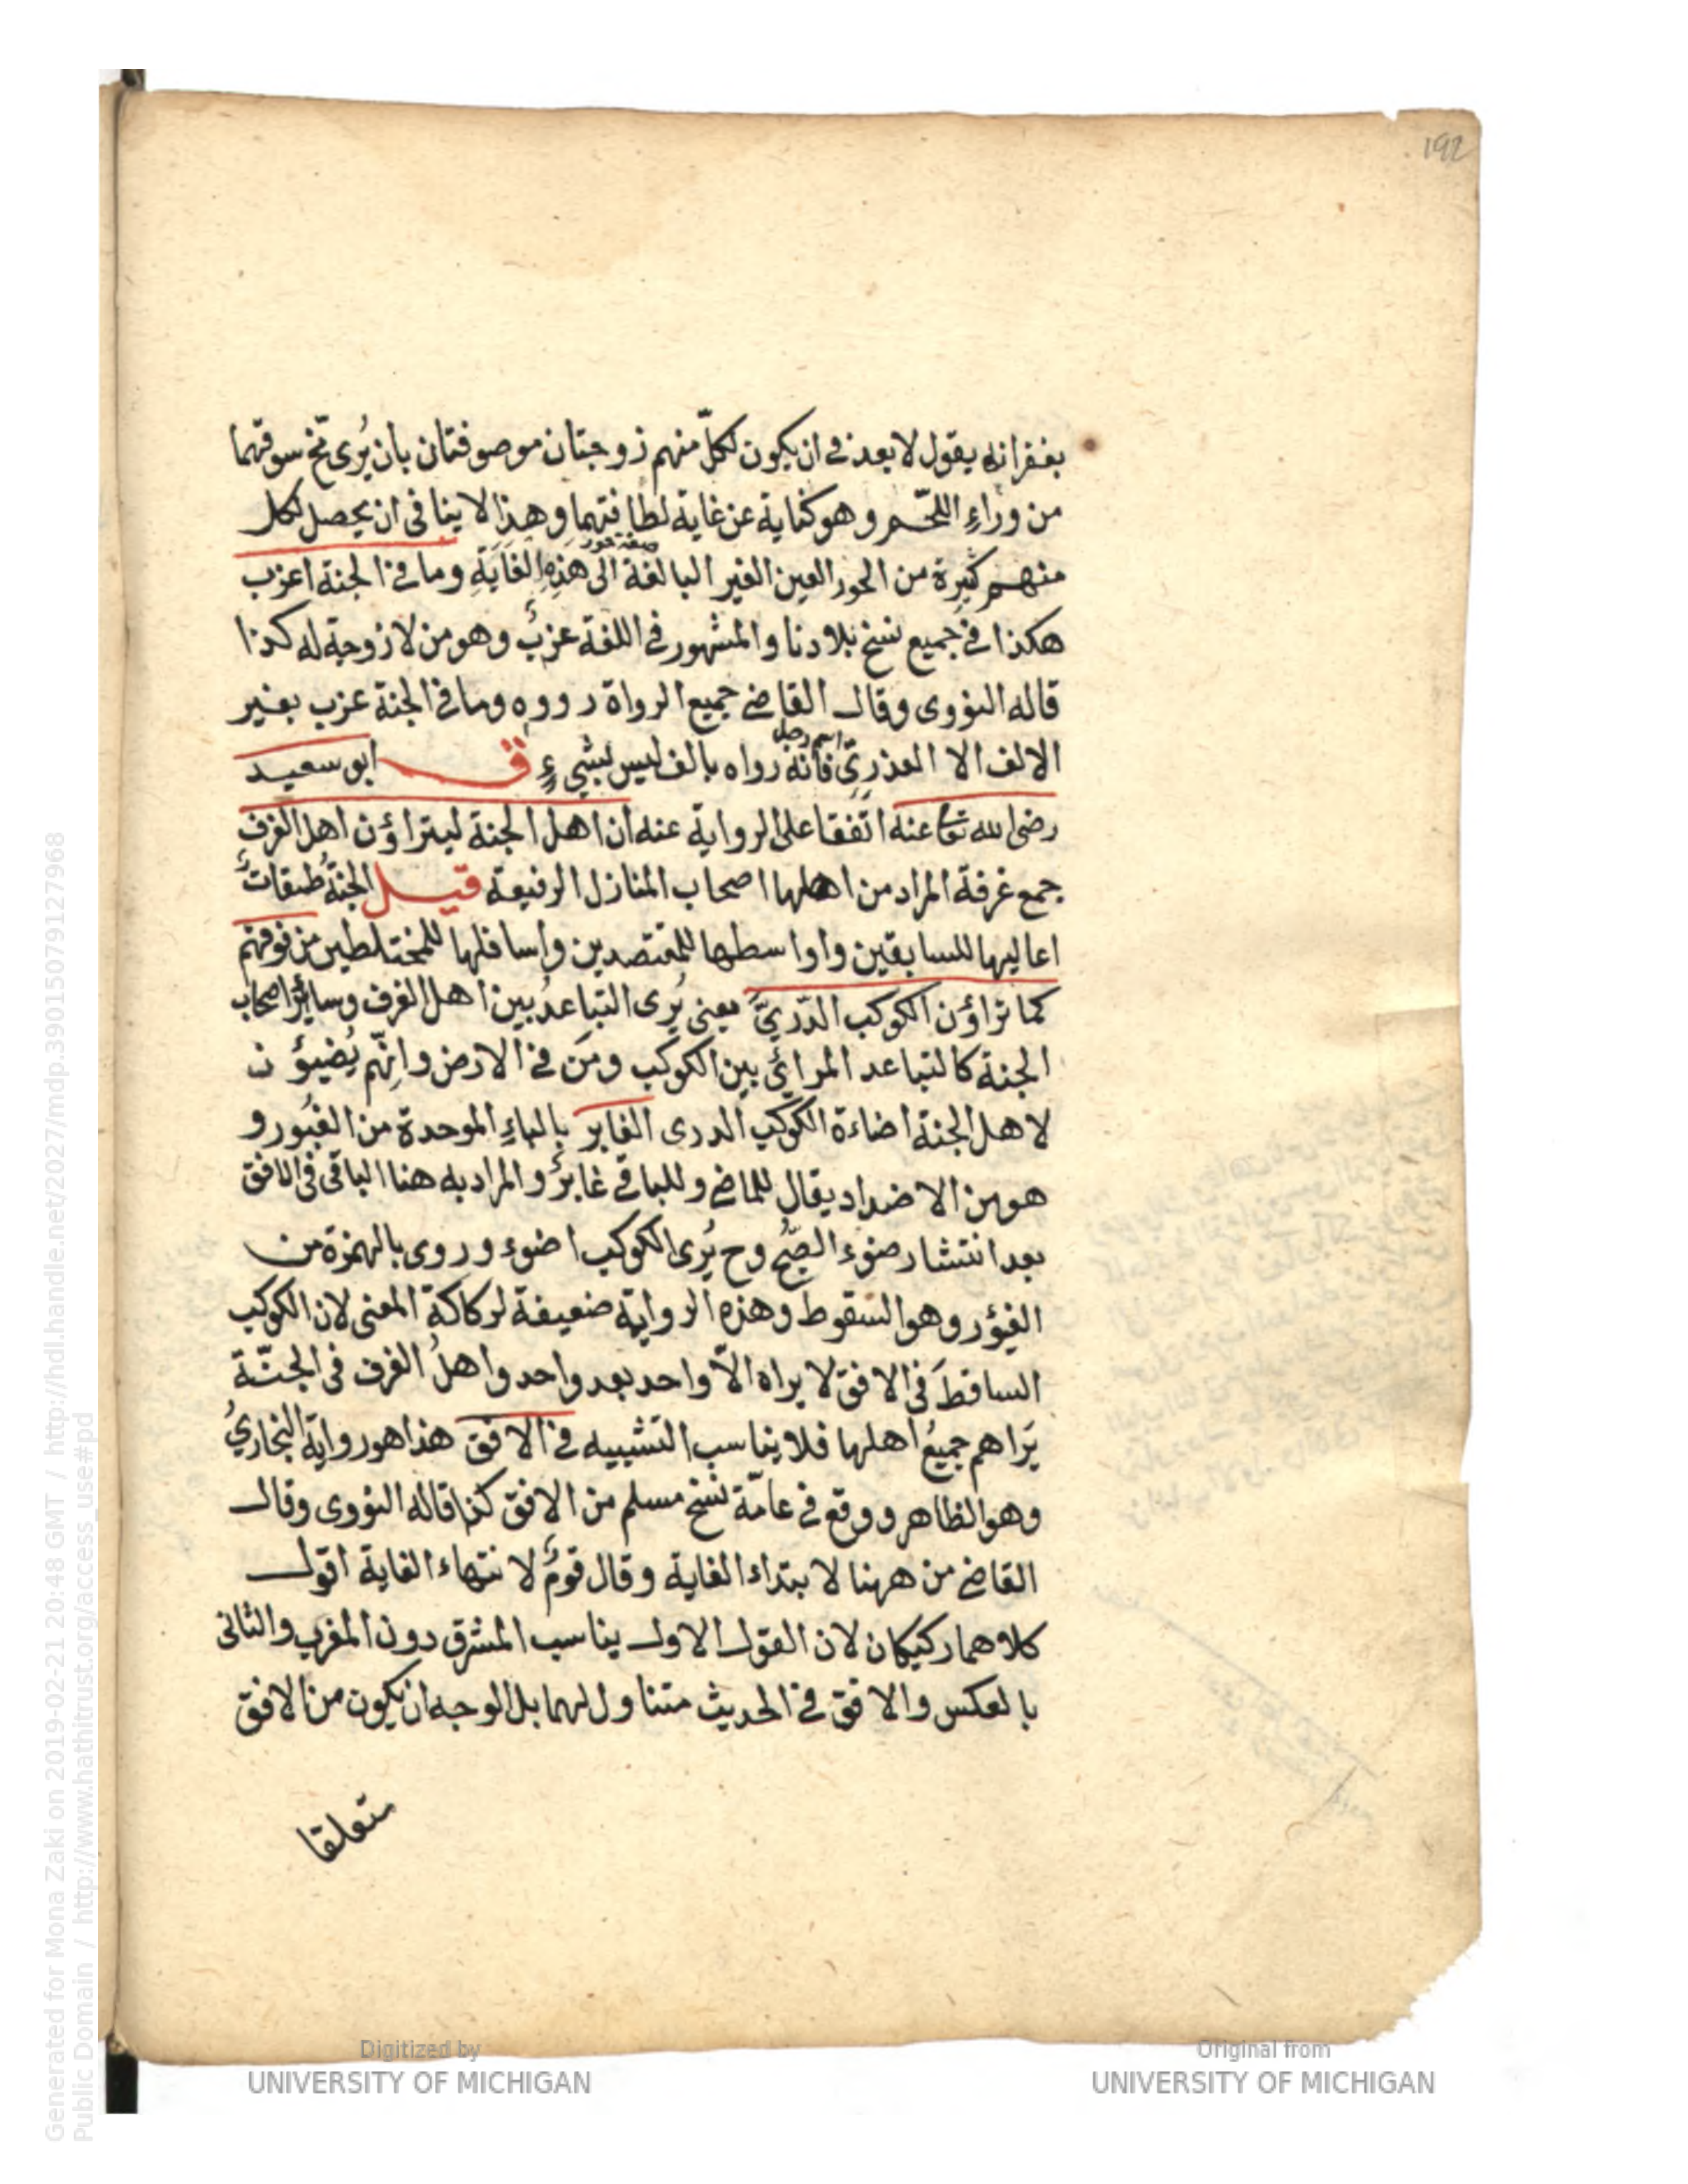 192
بغفرانه يقول لا بعد فى ان يكون لكلّ منهم زوجتان موصوفتان بان يُرى مخ سوقهما
من وراءِ اللحّم وهو كناية عن غاية لطافتهما وهذا لا ينافى ان يحصل لكل
منهم كثيرة من الحور العين الغير البالغة الى هذه الغايَةِ وما فى الجنة اعزب
صفة حور
هكذا فى جميع نسخ بلادنا والمشهور فى اللغة عزبٌ وهو من لا زوجة له كذا
قاله النووى وقال القاضى جميع الرواة رووه وما فى الجنة عزب بغير
الالف الا العذرىّ فانه رواه بالف ليس بشيءٍ ق ابو سعيد
اسم رجل
رضى الله تعا عنه اتّفقا على الرواية عنه ان اهل الجنة ليتراؤن اهل الغرف
جمع غرفة المراد من اهلها اصحاب المنازل الرفيعة قيل الجنةُ طبقاتٌ
اعاليها للسابقين واواسطها للمقتصدين واسافلها للمختلطين من فوقهم
كما تراؤن الكوكب الدّرىّ يعنى يُرى التباعدُ بين اهل الغرف وسائر اصحاب
الجنة كالتباعد المرائي بين الكوكب ومَن فى الارض وانّهم يُضيؤن
لاهل الجنة اضاءة الكوكب الدرى الغابر بالباءِ الموحدة من الغبُور و
هو من الاضداد يقال للماضى وللباقى غابرٌ والمراد به هنا الباقى فى الافق
بعد انتشار ضوء الصّبح وح يُرى الكوكب اضوء وروى بالهمزة من
الغؤر وهو السقوط وهذه الرواية ضعيفة لركاكة المعنى لان الكوكب
الساقطَ فى الافق لا يراه الاّ واحد بعد واحد واهلُ الغرف فى الجنّة
يَراهم جميعُ اهلها فلا يناسب التشبيه فى الافق هذا هو رواية البخاريُ
وهو الظاهر ووقع فى عامّة نسخ مسلم من الافق كذا قاله النووى وقال
القاضى من ههنا لابتداء الغاية وقال قومٌ لانتهاء الغاية اقول
كلاهما ركيكان لان القول الاول يناسب المشرق دون المغرب والثانى
بالعكس والافق فى الحديث متناول لهما بل الوجه ان يكون من الافق
متعلقا
Generated for Mona Zaki on 2019-02-21 20:48 GMT / http://hdl.handle.net/2027/mdp.39015079127968
Public Domain / http://www.hathitrust.org/access_use#pd
Digitized by
UNIVERSITY OF MICHIGAN
Original from
UNIVERSITY OF MICHIGAN